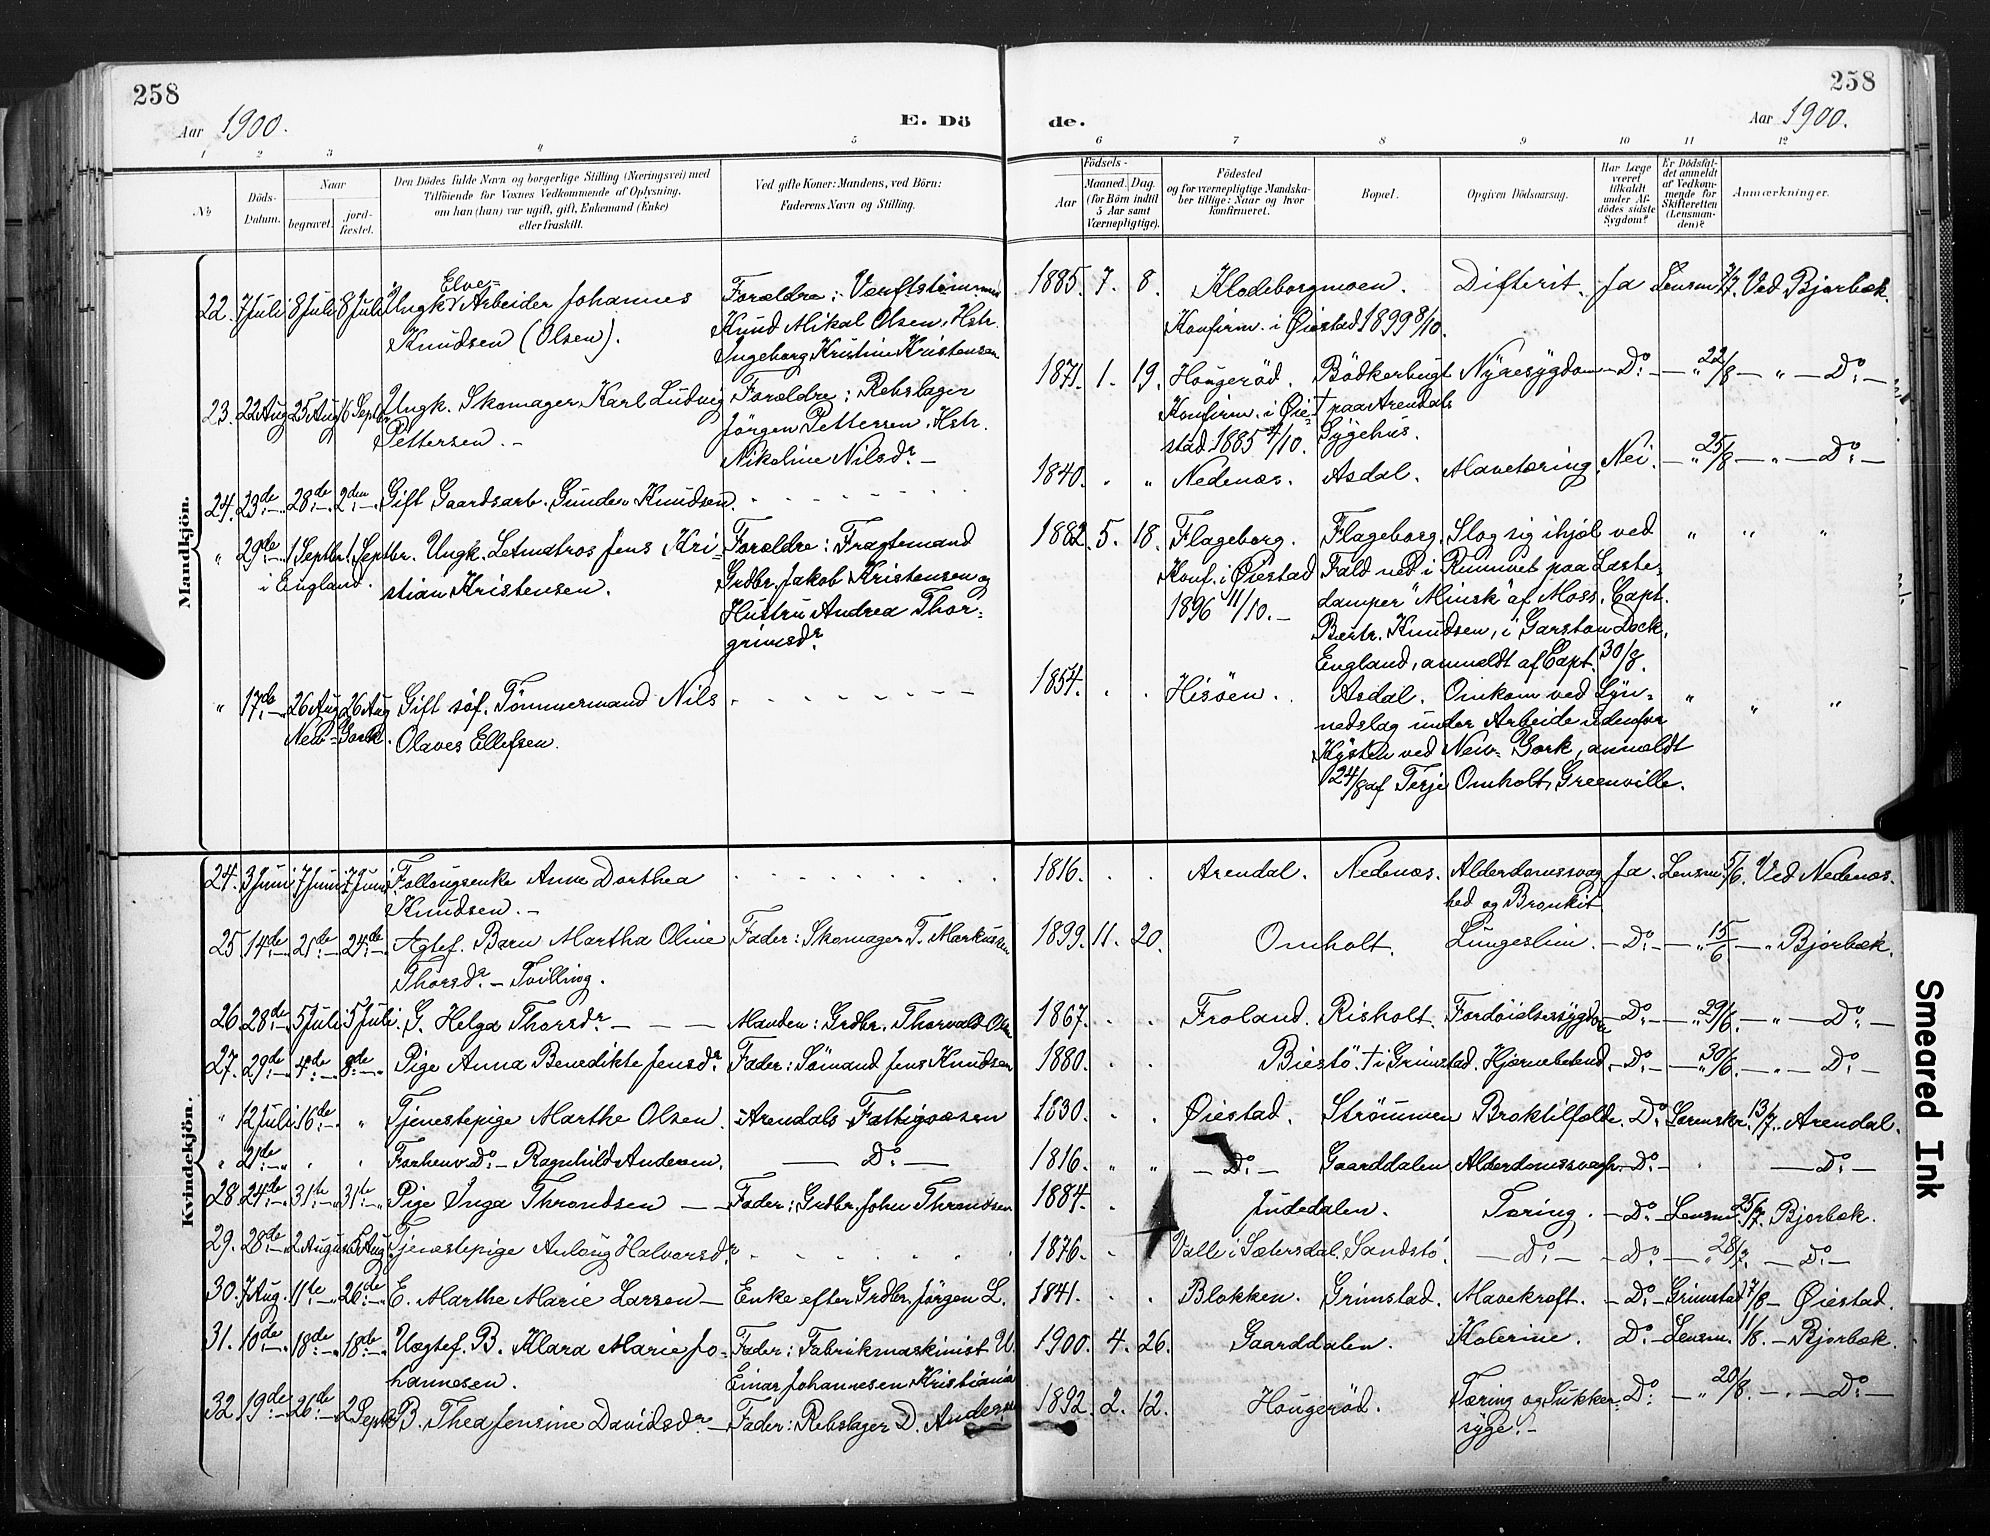 258
258
Aar 1900.
E. Dö
de.
Aar 1900.
1 2 3 4 5 6 7 8 9 10 11 12
№
Döds-Datum.
Naar
begravet.
jord-fæstet.
Den Dödes fulde Navn og borgerlige Stilling (Næringsvei) med
Tilföiende for Voxnes Vedkommende af Oplysning,
om han (hun) var ugift, gift, Enkemand (Enke)
eller fraskilt.
Ved gifte Koner: Mandens, ved Börn:
Faderens Navn og Stilling.
Födsels-
Aar
Maaned. Dag.
(for Börn indtil
5 Aar samt
Værnepligtige).
Födested
og for værnepligtige Mandska-
ber tillige: Naar og hvor
konfirmeret.
Bopæl.
Opgiven Dödsaarsag.
Har Læge
været
tilkaldt
under Af-
dödes sidste
Sygdom?
Er Dödsfal-
det anmeldt
af Vedkom-
mende for
Skifteretten
(Lensman-
den)?
Anmærkninger.
Mandkjön.
22. 7 Juli 8 Juli 8 Juli Ungk. Elve-Arbeider Johannes Forældre: Værftstømmerm 1885. 7. 8. Klodeborgmoen. Difterit. Ja Lensm. 7/7. Ved Bjorbæk.
Knudsen (Olsen). Knud Mikal Olsen, Hstr. Konfirm. i Øiestad 1899 8/10.
Ingeborg Kristine Kristensen
23. 22 Aug 25 Aug 16 Septbr Ungk. Skomager Karl Ludvig Forældre: Rebslager 1871. 1. 19. Hougerød. Bödkerbugt Nyresygdom – Do – „ 22/8 – „ – Do –
Pettersen. – Jørgen Pettersen, Hstr. Konfirm. i Øie- † paa Arendals
Nikoline Nilsdr. – stad 1885 4/10. Sygehus.
24. 23de 28de 2den Gift Gaardsarb. Gunder Knudsen. 1840. „ Nedenæs. Asdal. Mavetæring. Nei. – „ 25/8 – „ – Do –
„ 29de 1 Septbr. 1 Septbr. Ungk. Letmatros Jens Kri- Forældre: Fragtemand 1882. 5. 18. Flageborg. Flageborg. Slog sig ihjel ved „ „ „
i England. stian Kristensen. Grdbr. Jakob Kristensen og Konf. i Øiestad Fald ned i Rummet paa Laste-
Hustru Andrea Thor- 1896 11/10. – damper "Minsk" af Moss, Capt.
grimsdr. Bertr. Knudsen, i Garston Dock,
England, anmeldt af Capt. 30/8.
„ 17de 26 Aug 26 Aug Gift söf. Tömmermand Nils 1854. Hisöen. Asdal. Omkom ved Lyn- „ „ „
New-York. Olaves Ellefsen. nedslag under Arbeide udenfor
Kysten ved New-York, anmeldt
24/8 af Terje Omholt, Greenville.
Kvindekjön.
24. 3 Juni 7 Juni 7 Juni Follougsenke Anne Dorthea 1816. Arendal. Nedenæs. Alderdomssvag- Ja. Lensm. 5/6. Ved Nedenæs.
Knudsen. – hed og Bronkit
25. 14de 21de 24de Ægtef. Barn Martha Oline Fader: Skomager T. Markussen 1899. 11. 20. Omholt. Lungeslim. – Do – „ 15/6 – „ Bjorbæk.
Thorsdr. – Tvilling.
26. 28de 5 Juli 5 Juli. G. Helga Thorsdr. – – – Manden: Grdbr. Thorvald Ols 1867. Froland. Risholt. Fordöielsessygdom – Do – „ 29/6. – „ – Do –
27. 29de 4de 8de Pige Anna Benedikte Jensdr. Fader: Sömand Jens Knudsen 1880. Biestö. † i Grimstad. Hjernebetænd. – Do – „ 30/6. – „ – Do –
„ 12 Juli 16de „ Tjenestepige Marthe Olsen. Arendals Fattigvæsen 1830. Øiestad. Strömmen Broktilfælde. Do. Lorenskr. 13/7. Arendal.
„ 21de „ „ Forhenv. Do – Ragnhild Andersen. – Do – 1816. „ „ – Do – Gaarddalen Alderdomssvagh. – Do – – Do –
28. 24de 31te 31te Pige Inga Throndsen – – Fader: Grdbr. John Throndsen 1884. Judedalen. Tæring. – Do – Lensm. 25/7. Bjorbæk.
29. 28de 2 August 5 Aug. Tjenestepige Anlaug Halvorsdr. 1876. Valle i Sætersdal. Sandstö. – Do – – Do – „ 28/7 – Do –
30. 7 Aug. 11te 26de E. Marthe Marie Larsen – Enke efter Grdbr. Jörgen L. 1841. Blokken. Grimstad. Mavekræft. – Do – Grimstad 7/8 – Øiestad.
31. 10de 18de 18de Uægtef. B. Klara Marie Jo- Fader: Fabrikmaskinist U. 1900. 4. 26. Gaarddalen. Kolerine. Do. Lensm. 11/8. – Bjorbæk.
hannesen. Einar Johannesen, Kristiania
32. 19de 26de 2 Septbr B. Thea Jensine Davidsdr. – Fader: Rebslager D. Andersen 1892. 2. 12. Hougeröd. Tæring og Sukker- Do. – „ 20/8. – „ – Do –
syge. –
Smeared Ink